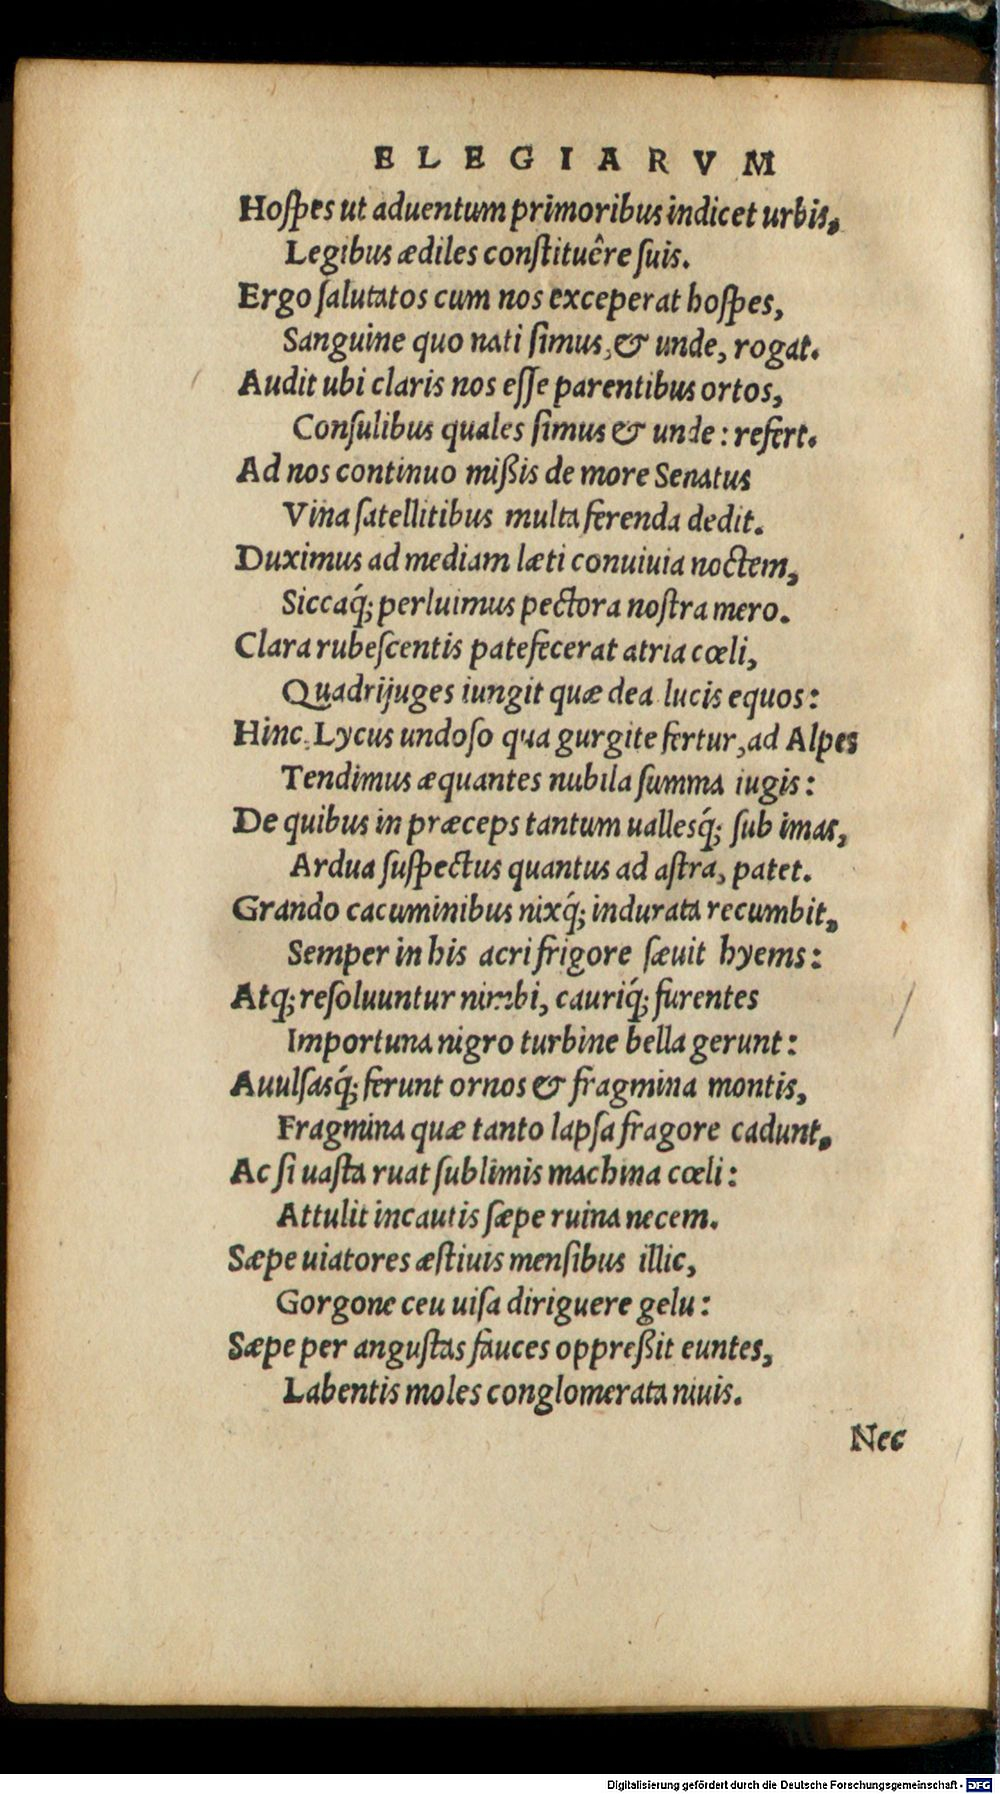 ELEGIARVM
Hoſpes ut aduentum primoribus indicet urbis,
Legibus ædiles conſtituêre ſuis.
Ergo ſalutatos cum nos exceperat hoſpes,
Sanguine quo nati ſimus, & unde, rogat.
Audit ubi claris nos eſſe parentibus ortos,
Conſulibus quales ſimus & unde: refert.
Ad nos continuo mißis de more Senatus
Vina ſatellitibus multa ferenda dedit.
Duximus ad mediam læti conuiuia noctem,
Siccaq́; perluimus pectora noſtra mero.
Clara rubeſcentis patefecerat atria cœli,
Quadrijuges iungit quæ dea lucis equos:
Hinc, Lycus undoſo qua gurgite fertur, ad Alpes
Tendimus æquantes nubila ſumma iugis:
De quibus in præceps tantum uallesq́; ſub imas,
Ardua ſuſpectus quantus ad aſtra, patet.
Grando cacuminibus nixq́; indurata recumbit,
Semper in his acri frigore ſæuit hyems:
Atq; reſoluuntur nimbi, cauriq́; furentes
Importuna nigro turbine bella gerunt:
Auulſasq́; ferunt ornos & fragmina montis,
Fragmina quæ tanto lapſa fragore cadunt,
Ac ſi uaſta ruat ſublimis machina cœli:
Attulit incautis ſæpe ruina necem.
Sæpe uiatores æſtiuis menſibus illic,
Gorgone ceu uiſa diriguere gelu:
Sæpe per anguſtas fauces oppreßit euntes,
Labentis moles conglomerata niuis.
Nec
Digitalisierung gefördert durch die Deutsche Forschungsgemeinschaft - DFG